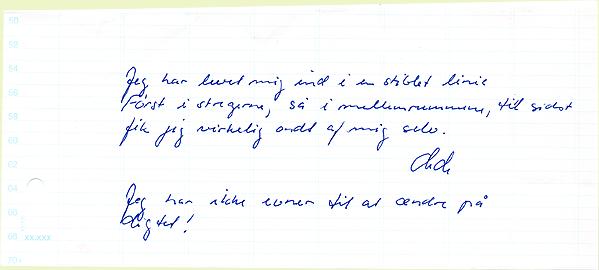 50
52
Jeg har levet mig ind i en stiblet linie
54
56
Først i stregerne, så i mellemrummene, til sidst
58
fik jeg virkelig ondt af mig selv.
60
62
64
Jeg har ikke evner til at ændre på
60
digtet!
xx.xxx
68
70